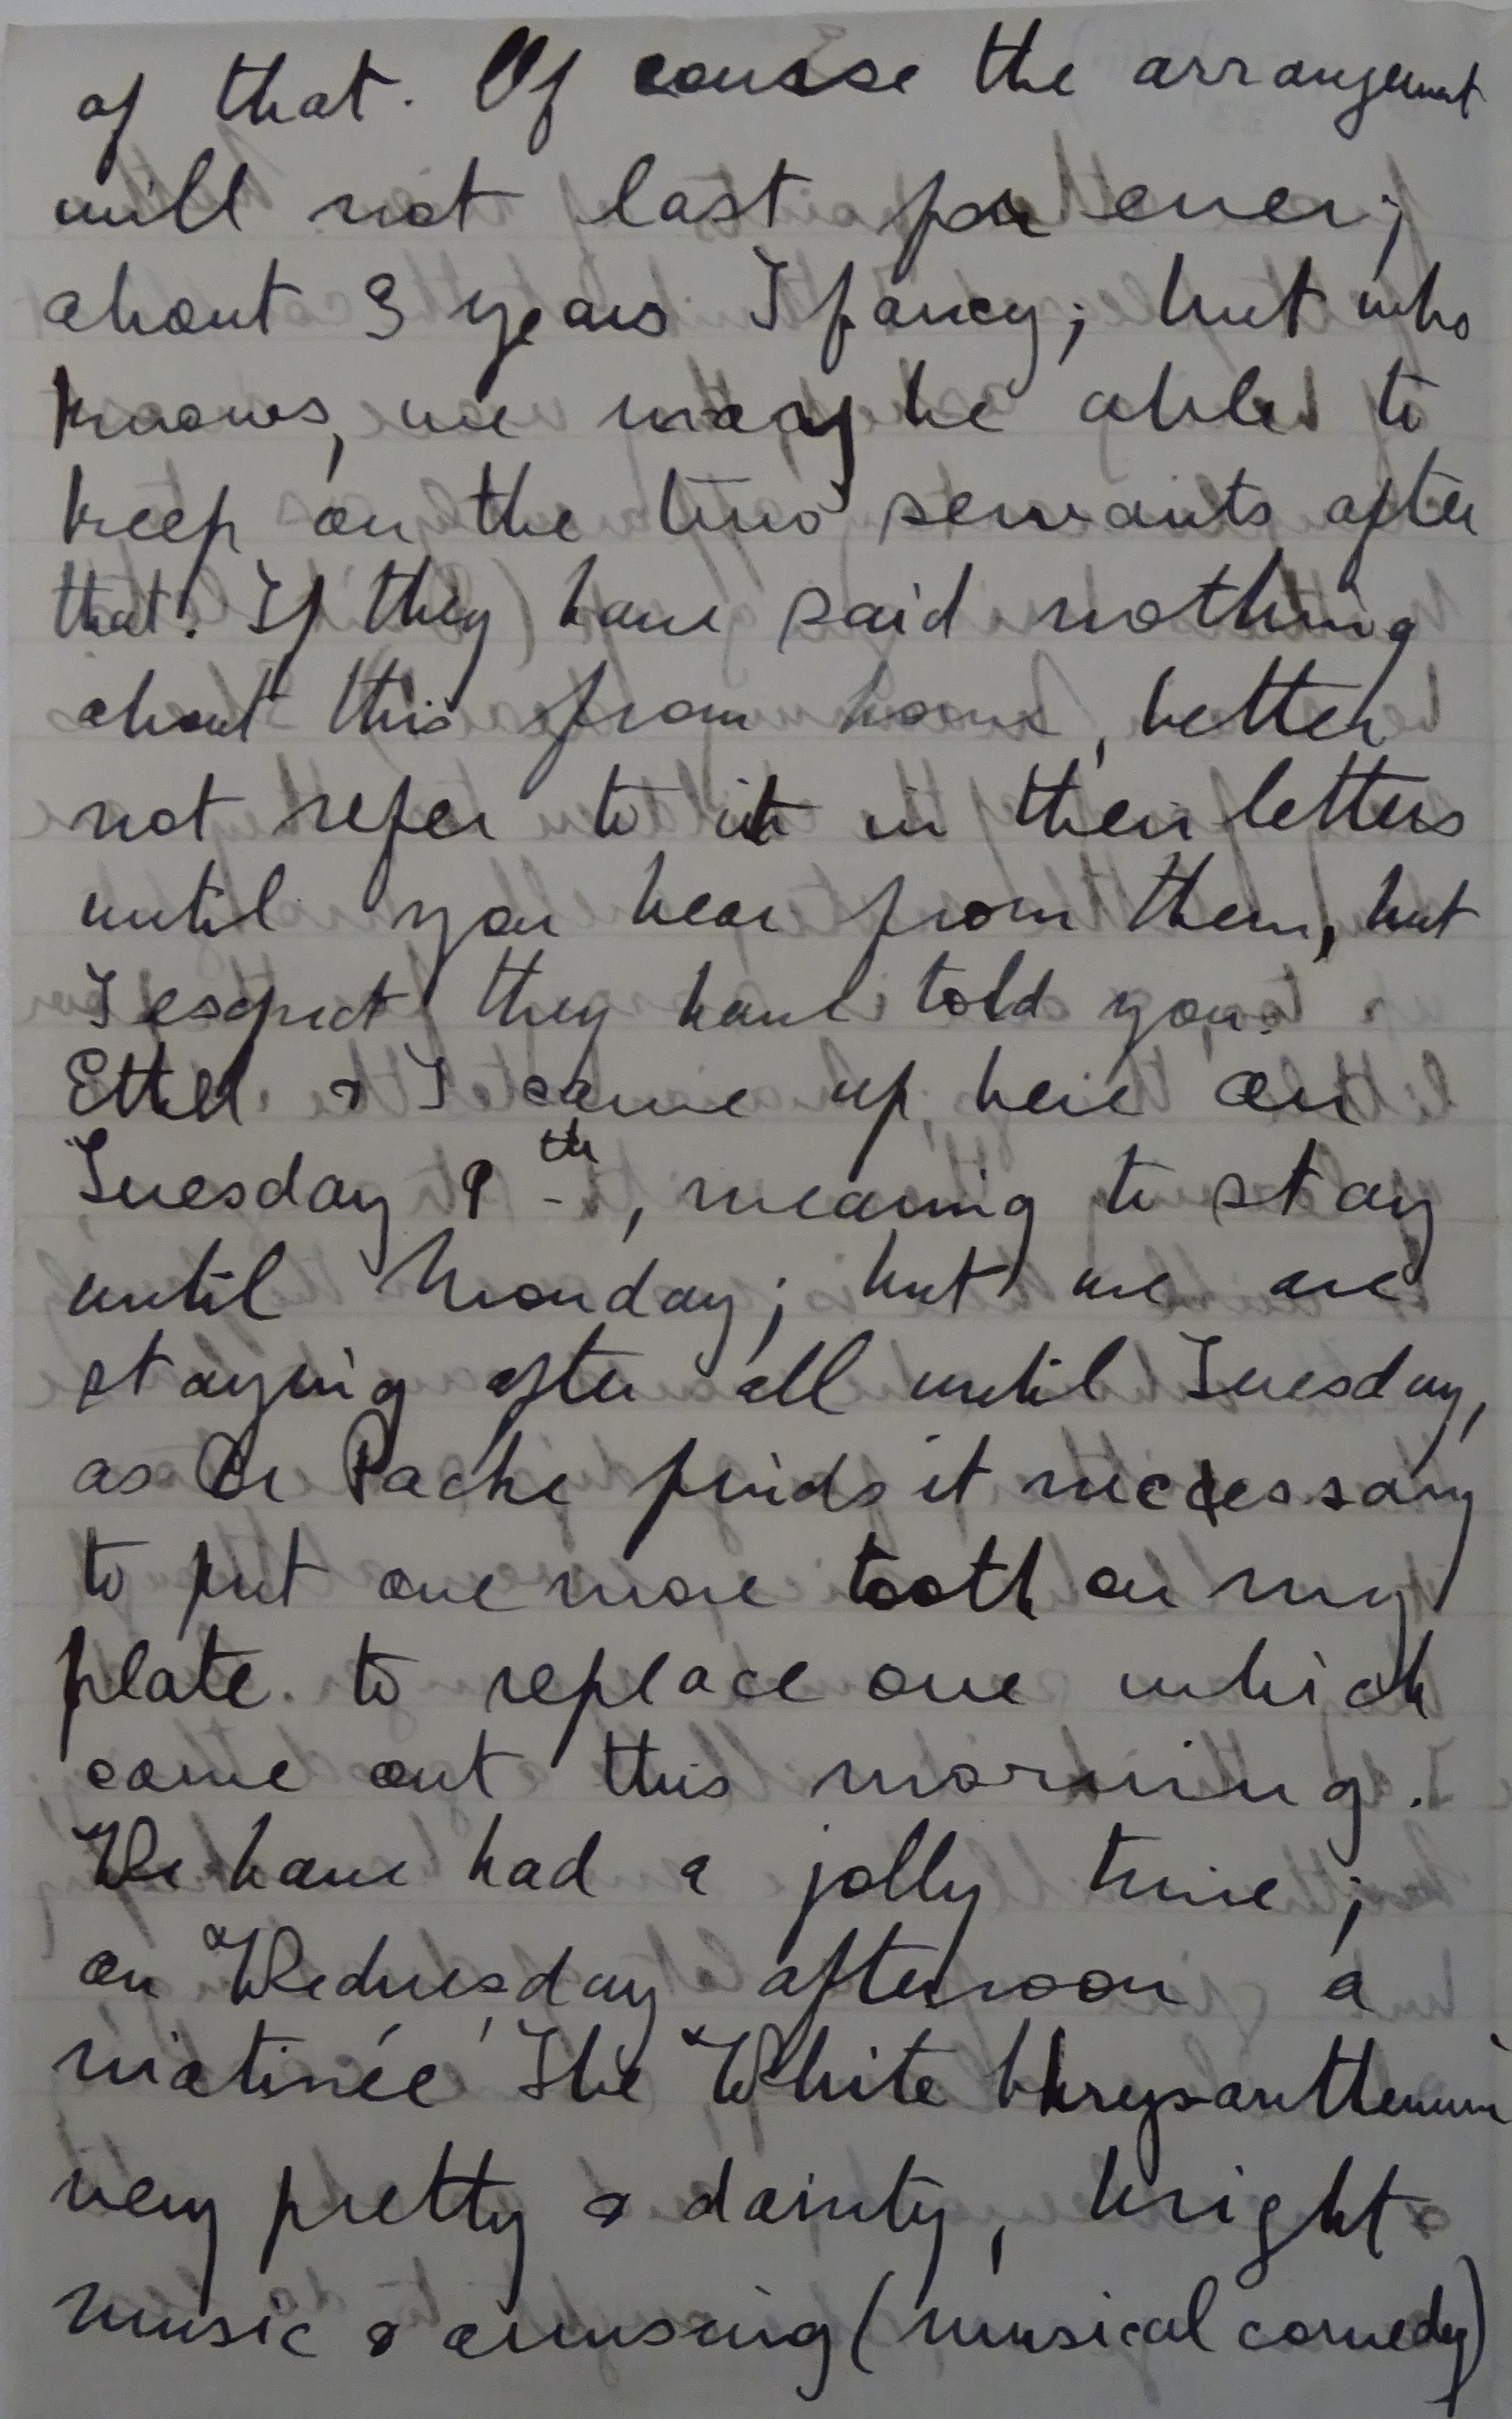 of that. Of course the arrangement
will not last for ever;
about 3 years I fancy; but who
knows, we may be able to
keep on the two servants after
that. If they have said nothing
about this from home, better
not refer to it in their letters
until you hear from them, but
I expect they have told you.
Ethel & I came up here on
Tuesday 9th, meaning to stay
until Monday; but we are
staying after all until Tuesday,
as Dr Pache finds it necessary
to put one more tooth on my
plate to replace one which
came out this morning.
We have had a jolly time;
on Wednesday afternoon a
matinée 'The White Chrysanthemum
very pretty & dainty, bright
music & amusing (musical comedy)